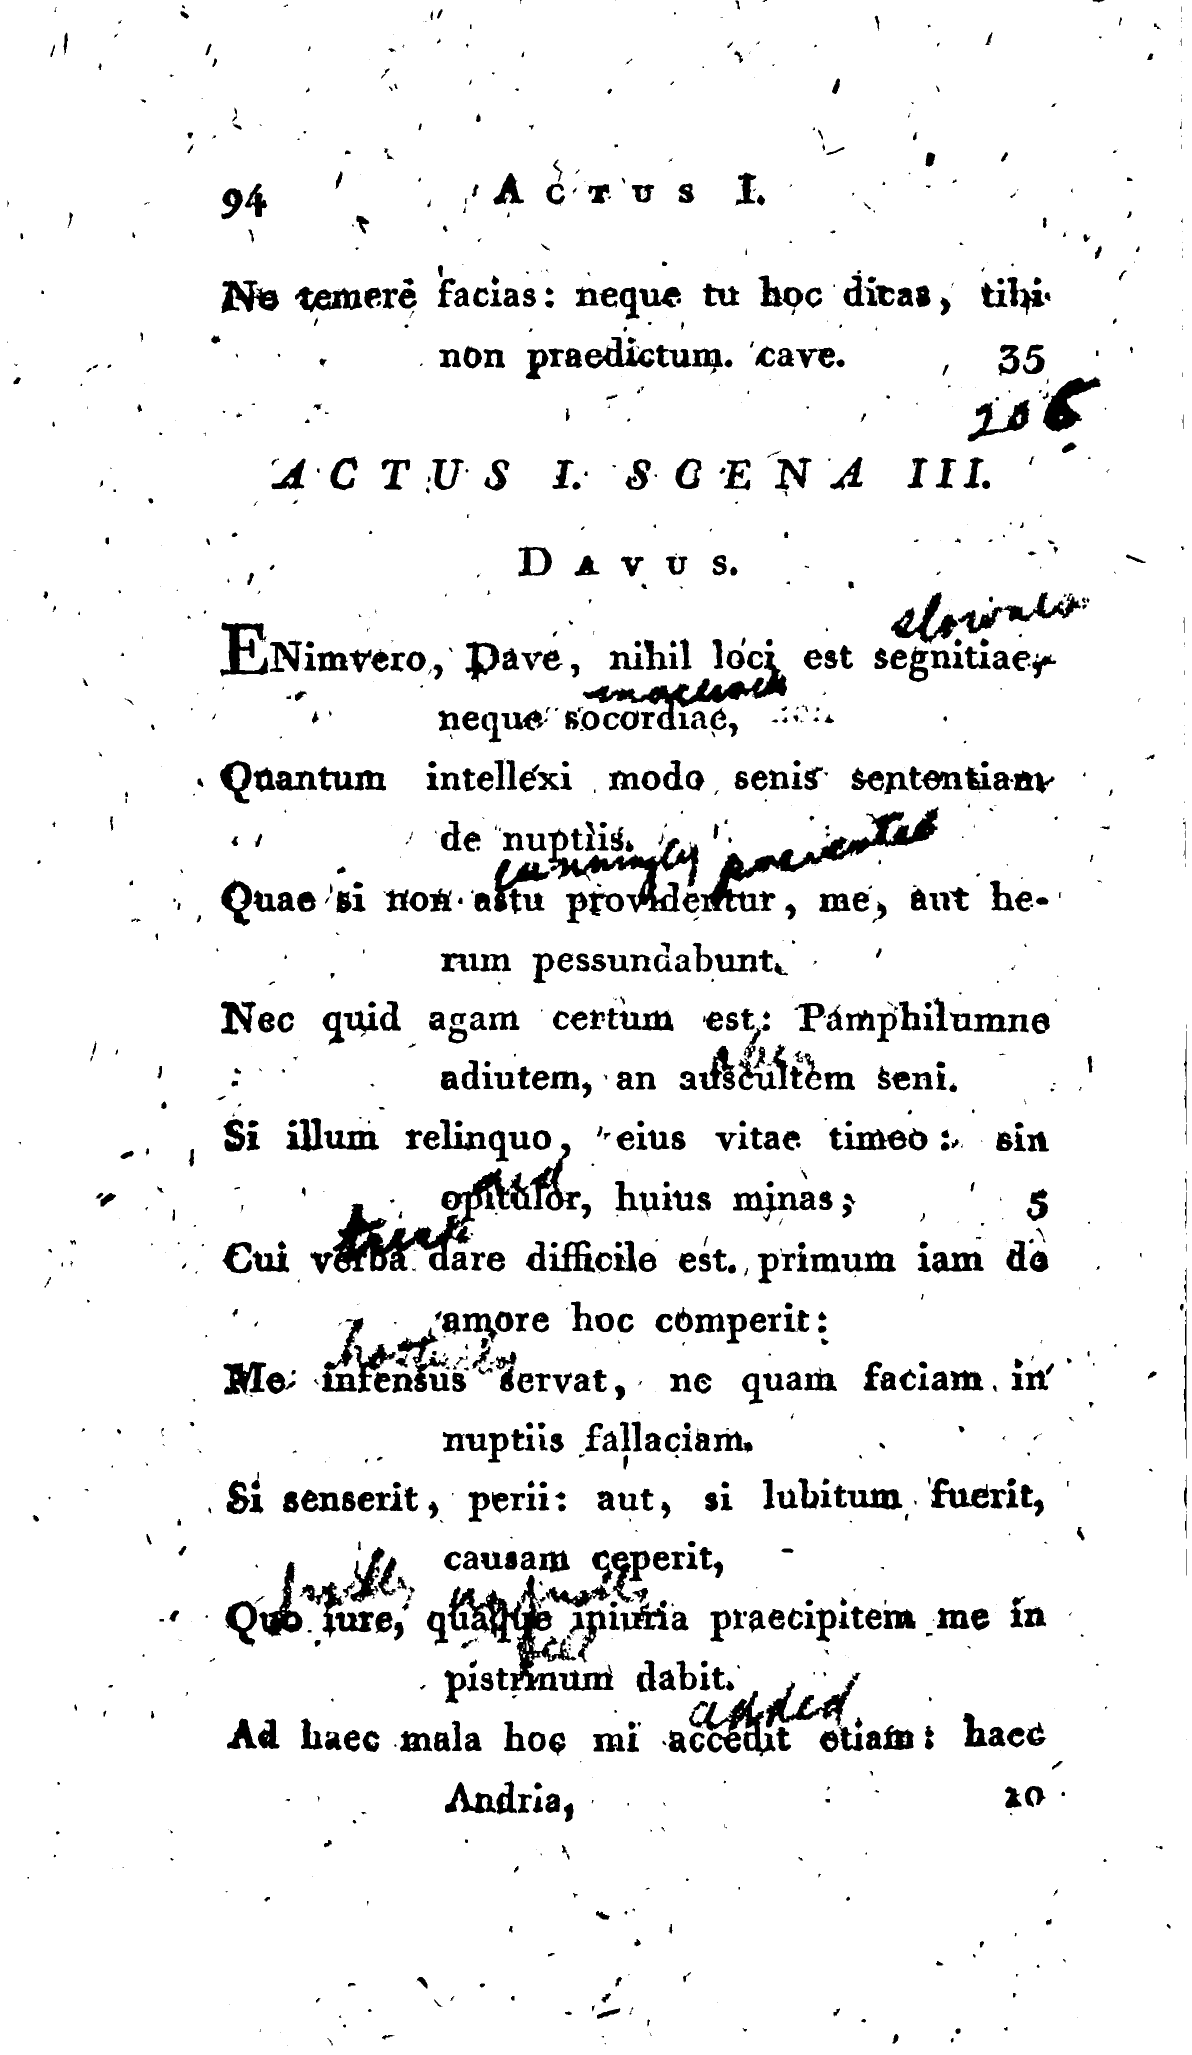 94 ACTUS I.
Ne temerè facias: neque tu hoc dicas, tibi
non praedictum. cave. 35
206
ACTUS I. SCENA III.
DAVUS.
slowness
ENimvero, Dave, nihil loci est segnitiae,
neque socordiae,
Quantum intellexi modo senis sententiam
de nuptiis.
cunningly prevented
Quae si non astu providentur, me, aut he-
rum pessundabunt.
Nec quid agam certum est: Pamphilumne
adiutem, an auscultem seni.
Si illum relinquo, eius vitae timeo: sin
aid
opitulor, huius minas; 5
Cui verba dare difficile est. primum iam de
amore hoc comperit:
Me infensus servat, ne quam faciam in
nuptiis fallaciam.
Si senserit, perii: aut, si lubitum fuerit,
causam ceperit,
Quo iure, quaque iniuria praecipitem me in
pistrinum dabit.
added
Ad haec mala hoc mi accedit etiam: haec
Andria, 10